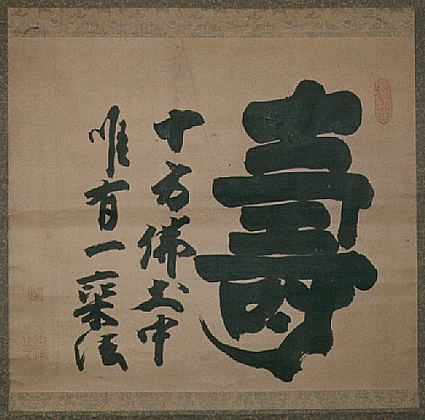 壽
十方佛土中
唯有一乘法